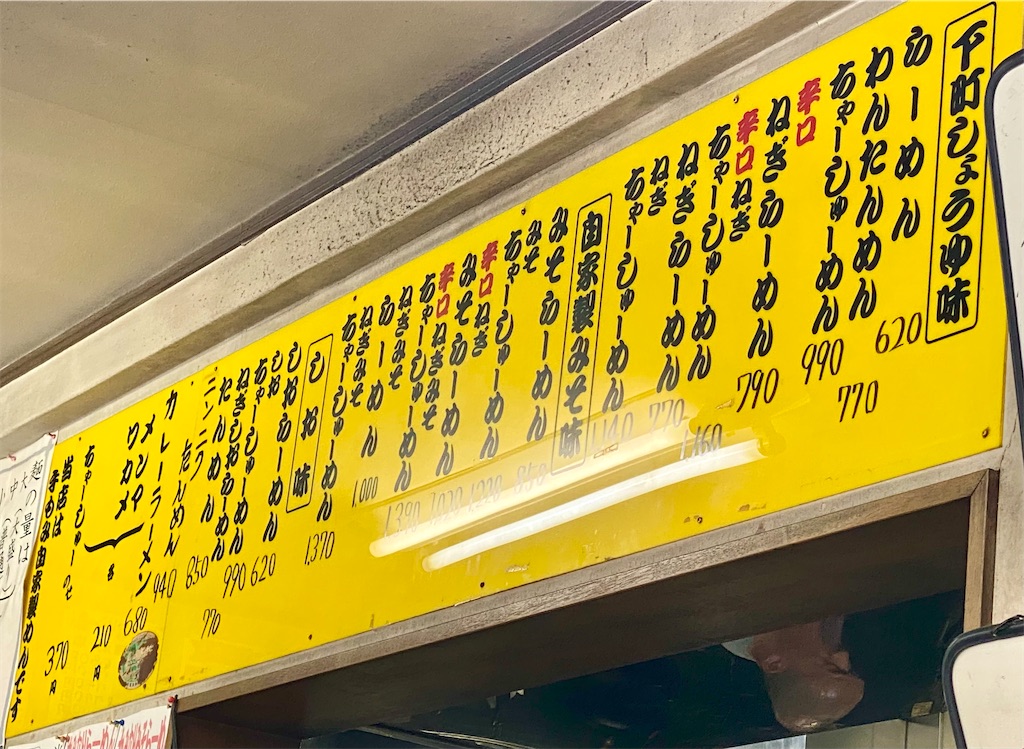 下町しょうゆ味
らーめん 620
わんたんめん 770
ちゃーしゅーめん 990
辛口 ねぎらーめん 790
辛口 ねぎちゃーしゅーめん 1,160
ねぎらーめん 770
ねぎちゃーしゅーめん 1,140
自家製みそ味
みそらーめん 850
みそちゃーしゅーめん 1,220
辛口 ねぎみそらーめん 1,020
辛口 ねぎみそちゃーしゅーめん 1,390
ねぎみそらーめん 1,000
ねぎみそちゃーしゅーめん 1,370
しお味
しおらーめん 620
しおちゃーしゅーめん 990
ねぎしおらーめん 770
たんめん 850
ニンニクたんめん 940
カレーラーメン 680
メンマ
ワカメ
各 210円
ちゃーしゅー 370円
当店は
手もみ自家製めんです
麺の量は
大
中